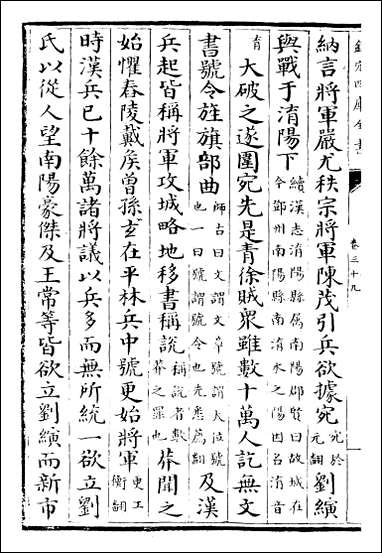 欽定四庫全書
卷三十九
納言將軍嚴尤秩宗將軍陳茂引兵欲據宛宛於元翻劉縯
與戰于淯陽下續漢志淯陽縣屬南陽郡賢曰故城在今鄧州南陽縣南淯水之陽因名淯音
育大破之遂圍宛先是青徐賊衆雖數十萬人訖無文
書號令旌旗部曲師古曰文謂文章號謂大位號也一曰號謂號令也先悉薦翻及漢
兵起皆稱將軍攻城略地移書稱說稱說者數莽之罪也莽聞之
始懼舂陵戴侯曾孫玄在平林兵中號更始將軍更工衡翻
時漢兵已十餘萬諸將議以兵多而無所統一欲立劉
氏以從人望南陽豪傑及王常等皆欲立劉縯而新市